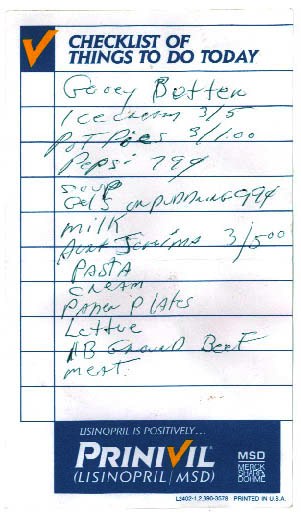 CHECKLIST OF
THINGS TO DO TODAY
Gooey Butter
Icecream 3/5
Pot Pies 3/1.00
Pepsi 79¢
Soup
Gels or pudding 99¢
milk
Aunt Jemima 3/5.00
Pasta
cream
Paper Plates
Lettuce
Ground Beef
meat
LISINOPRIL IS POSITIVELY...
PRINIVIL
(LISINOPRIL/MSD)
MSD
MERCK
SHARP&
DOHME
PRINTED IN U.S.A.